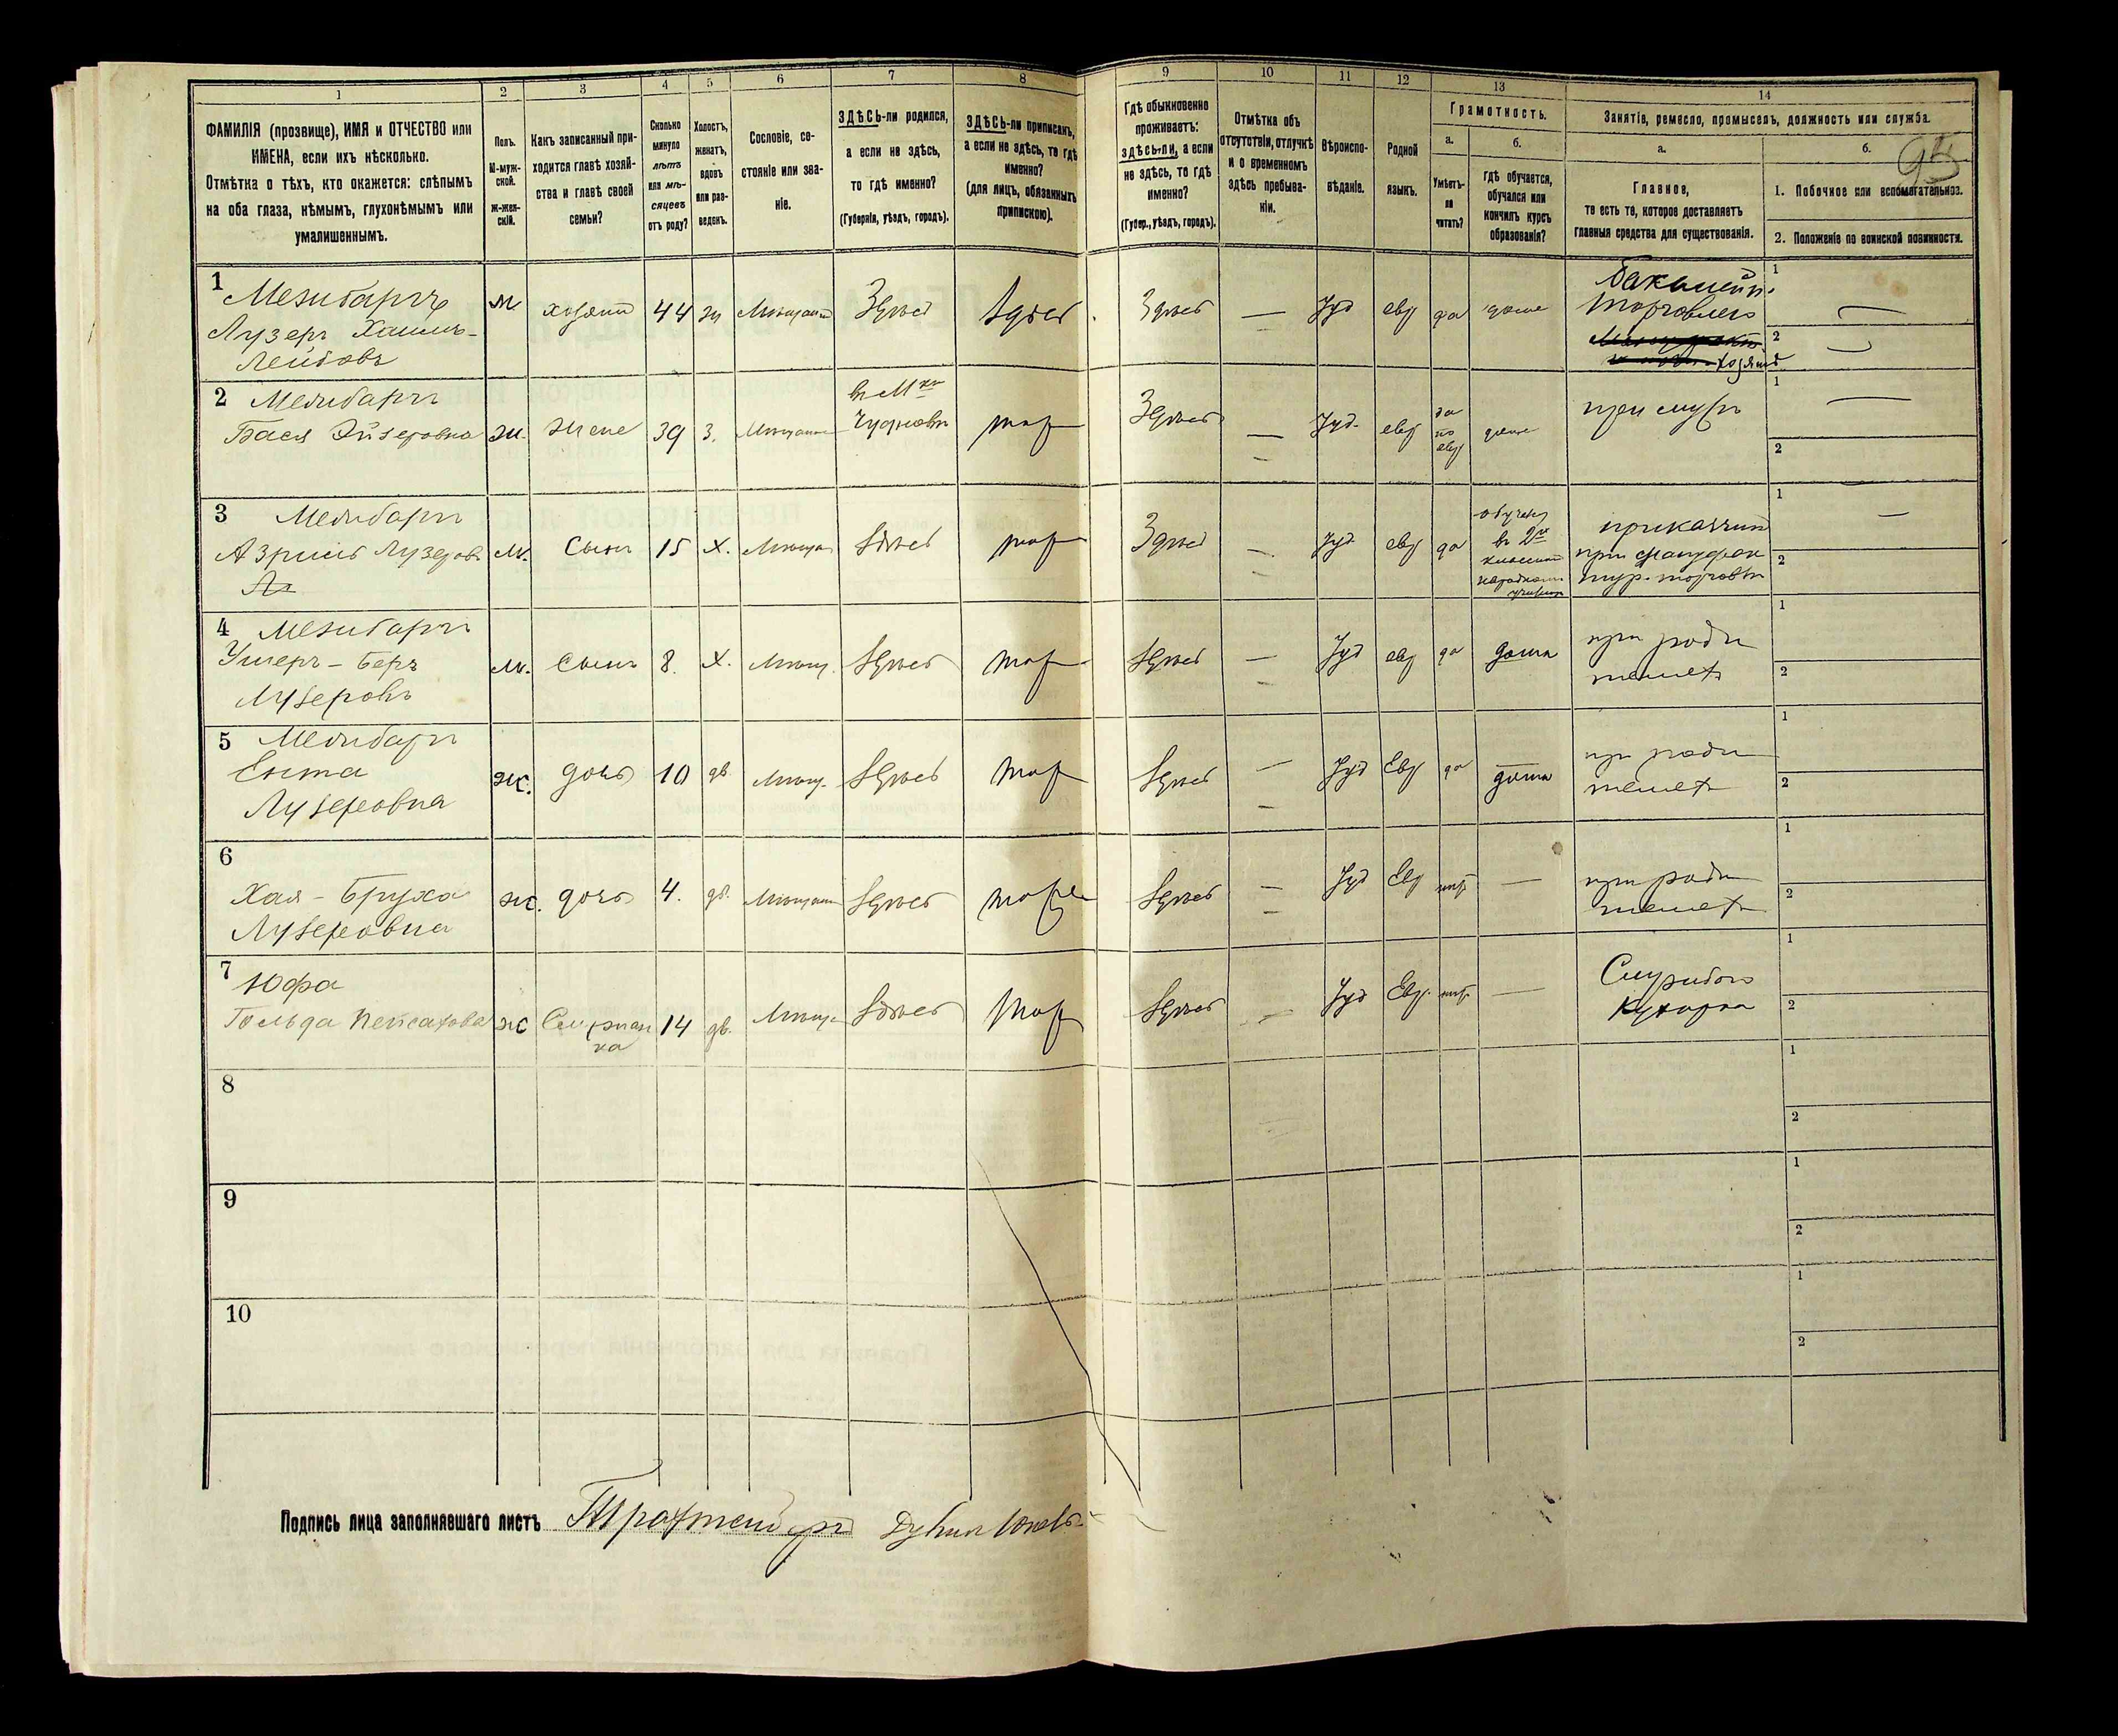 1 2 3 4 5 6 7 8 9 10 11 12 13 14
ФАМИЛІЯ (прозвище), ИМЯ и ОТЧЕСТВО или
ИМЕНА, если ихъ нѣсколько.
Отмѣтка о тѣхъ, кто окажется: слѣпымъ
на оба глаза, нѣмымъ, глухонѣмымъ или
умалишеннымъ.
Полъ.
М-муж-
ской.
Ж-жен-
скій.
Какъ записанный при-
ходится главѣ хозяй-
ства и главѣ своей
семьи?
Сколько
минуло
лѣтъ
или мѣ-
сяцевъ
отъ роду?
Холостъ,
женатъ,
вдовъ
или раз-
веденъ.
Сословіе, со-
стояніе или зва-
ніе.
ЗДѢСЬ-ли родился,
а если не здѣсь,
то гдѣ именно?
(Губернія, уѣздъ, городъ).
ЗДѢСЬ-ли приписанъ,
а если не здѣсь, то гдѣ
именно?
(для лицъ, обязанныхъ
припискою).
Гдѣ обыкновенно
проживаетъ:
здѣсь-ли, а если
не здѣсь, то гдѣ
именно?
(Губер., уѣздъ, городъ).
Отмѣтка объ
отсутствіи, отлучкѣ
и о временномъ
здѣсь пребыва-
ніи.
Вѣроиспо-
вѣданіе.
Родной
языкъ.
Грамотность.
а.
Умѣетъ-
ли
читать?
б.
Гдѣ обучается,
обучался или
кончилъ курсъ
образованія?
Занятіе, ремесло, промыселъ, должность или служба.
а.
Главное,
то есть то, которое доставляетъ
главныя средства для существованія.
б.
95
1. Побочное или вспомогательное.
2. Положеніе по воинской повинности.
1
Мезибаръ
Лузеръ Хаимъ-
Лейбовъ
м. хозяин 44 ж Мѣщанин Здѣсь Здѣсь Здѣсь — Іуд евр да дома
бакалейн.
торговлею
хозяинъ
1
2
2 Мезибаръ
Бася Эйзеровна
ж. жена 39 з. Мѣщанка
въ М-ко
Чудновѣ
тоже Здѣсь — Іуд. евр
да
по
евр
дома
при мужѣ
1
2
3 Мезибаръ
Азриль Лузеровъ
м. Сынъ 15 х. Мѣщан Здѣсь тоже Здѣсь — Іуд евр да
въ 2хъ
классном
народном
училищ
приказчик
при мануфак
тур. торговлѣ
1
2
4 Мезибаръ
Ушеръ-Беръ
Лузеровъ
м. Сынъ 8. х. Мѣщ. Здѣсь тоже Здѣсь — Іуд евр да дома
при роди
теляхъ
1
2
5 Мезибаръ
Ента
Лузеровна
ж. дочь 10 дѣв Мѣщ. Здѣсь тоже Здѣсь — Іуд Евр да дома
при роди
теляхъ
1
2
6
Хая-Бруха
Лузеровна
ж. дочь 4. дѣв. Мѣщан Здѣсь тоже Здѣсь — Іуд Евр нѣт —
при роди
теляхъ
1
2
7 Юфа
Гольда Пейсахова
ж
Служан
ка
14 дѣв. Мѣщ. Здѣсь тоже Здѣсь — Іуд Евр. нѣт —
Кухарка
1
2
8
1
2
9
1
2
10
1
2
Подпись лица заполнявшаго листъ